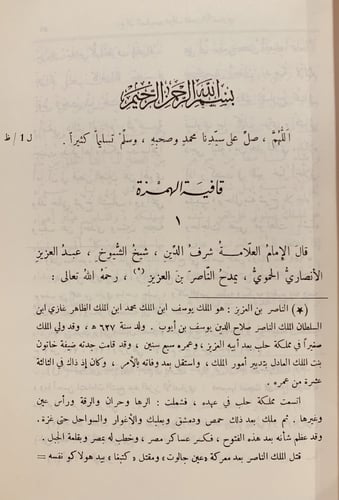 بسم الله الرحمن الرحيم
اَللّهُمَّ ، صلِّ على سيّدِنا محمدٍ وصحبِهِ ، وسلِّمْ تسليمًا كثيرًا .
ل 1 / ظ
قافية الهمزة
١
قالَ الإمامُ العلّامةُ شرفُ الدّينِ ، شيخُ الشُّيوخِ ، عبدُ العزيزِ
الأنصاريُّ الحَمَويُّ ، يمدحُ النّاصرَ بنَ العزيزِ (*) ، رحمَهُ اللهُ تعالى :
(*) الناصر بن العزيز : هو الملك يوسف ابن الملك محمد ابن الملك الظاهر غازي ابن
السلطان الملك الناصر صلاح الدين يوسف بن أيوب . ولد سنة ٦٢٧ هـ ، وقد ولي الملك
صغيرًا في مملكة حلب بعد أبيه العزيز ، وعمره سبع سنين ، وقد قامت جدته ضيفة خاتون
بنت الملك العادل بتدبير أمور الملك ، واستقل بعد وفاتها بالأمر ، وكان إذ ذاك في الثالثة
عشرة من عمره .
اتسعت مملكة حلب في عهده ، فشملت : الرها وحران والرقة ورأس عين
وغيرها . ثم ملك بعد ذلك حمص ودمشق وبعلبك والأغوار والسواحل حتى غزة .
وقد عظم شأنه بعد هذه الفتوح ، فكسر عساكر مصر ، وخطب له بمصر وبقلعة الجبل .
قتل الملك الناصر بعد معركة «عين جالوت» ومقتل «كتبغا» بيد هولاكو نفسه =